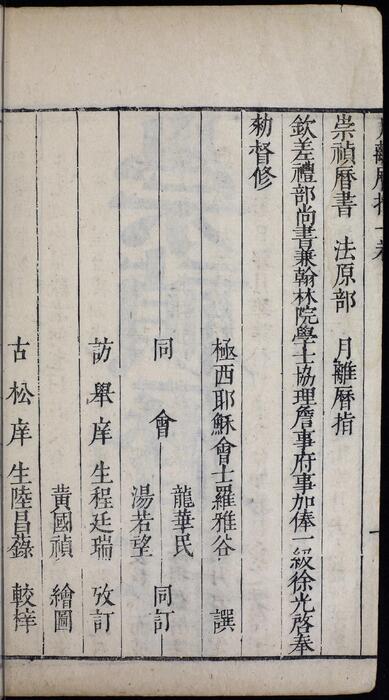 月離曆指一卷
崇禎曆書 法原部 月離曆指
欽差禮部尚書兼翰林院學士協理詹事府事加俸一級徐光啓奉
勑督修
極西耶穌會士羅雅谷 譔
龍華民
同會 同訂
湯若望
訪舉庠生程廷瑞 攷訂
黃國禎 繪圖
古松庠生陸昌籙 較梓
一